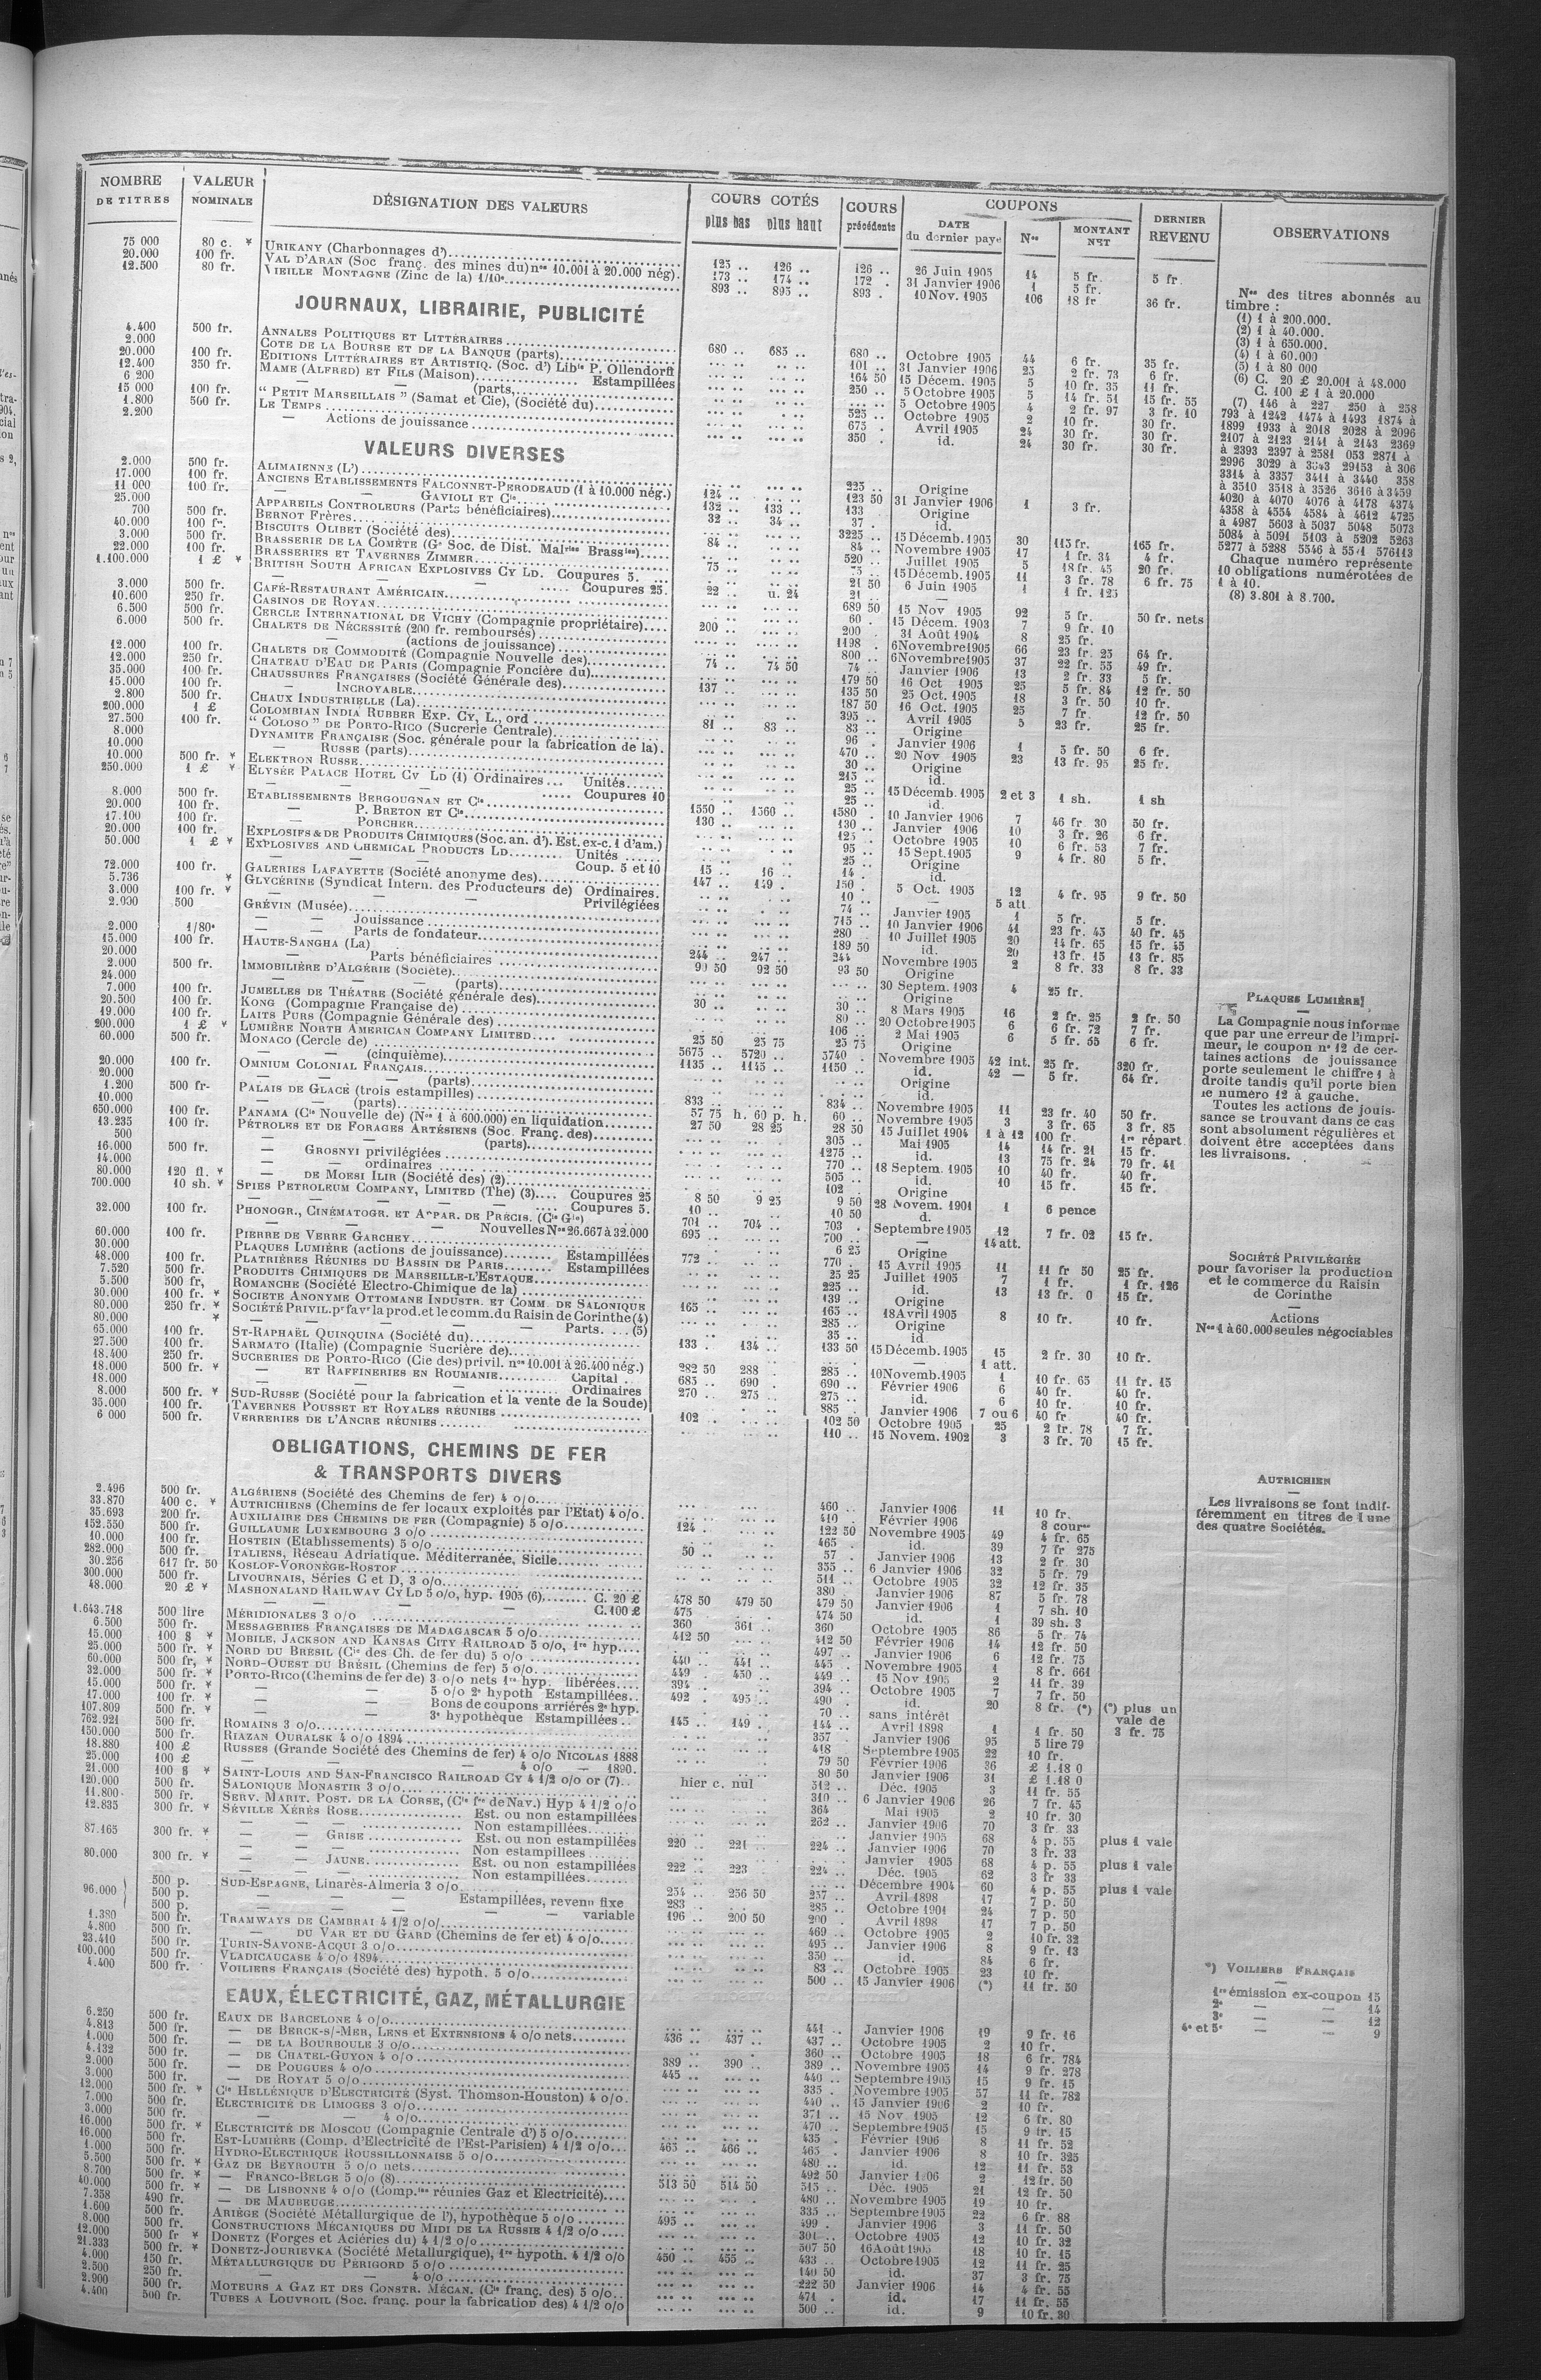 NOMBRE DE TITRES | VALEUR NOMINALE | DÉSIGNATION DES VALEURS | COURS COTÉS plus bas plus haut | COURS précédents | COUPONS DATE du dernier payé | Nos | MONTANT NET | DERNIER REVENU | OBSERVATIONS
75 000 80 c. ¥ URIKANY (Charbonnages d') 125 .. 126 .. 126 .. 26 Juin 1905 14 5 fr. 5 fr
20.000 100 fr. VAL D'ARAN (Soc franç. des mines du) nos 10.001 à 20.000 nég). 173 .. 174 .. 172 . 31 Janvier 1906 1 5 fr.
12.500 80 fr. VIEILLE MONTAGNE (Zinc de la) 1/10e 893 .. 895 .. 893 . 10 Nov. 1905 106 18 fr 36 fr.
JOURNAUX, LIBRAIRIE, PUBLICITÉ
4.400 500 fr. ANNALES POLITIQUES ET LITTÉRAIRES 680 .. 685 .. 680 .. Octobre 1905 44 6 fr. 35 fr.
2.000 COTE DE LA BOURSE ET DE LA BANQUE (parts) 101 .. 31 Janvier 1906 25 2 fr. 73 6 fr.
20.000 100 fr. EDITIONS LITTÉRAIRES ET ARTISTIQ. (Soc. d') Libie P. Ollendorff 164 50 15 Décem. 1905 5 10 fr. 35 11 fr.
12.400 350 fr. MAME (ALFRED) ET FILS (Maison) Estampillées 250 .. 5 Octobre 1905 5 14 fr. 51 15 fr. 55
6 200 — — (parts, 5 Octobre 1905 4 2 fr. 97 3 fr. 10
15 000 100 fr. “ PETIT MARSEILLAIS ” (Samat et Cie), (Société du) 525 .. Octobre 1905 2 10 fr. 30 fr.
1.800 500 fr. LE TEMPS 675 . Avril 1905 24 30 fr. 30 fr.
2.200 — Actions de jouissance 350 . id. 24 30 fr. 30 fr.
VALEURS DIVERSES
2.000 500 fr. ALIMAIENNE (L') 225 .. Origine
17.000 100 fr. ANCIENS ETABLISSEMENTS FALCONNET-PERODEAUD (1 à 10.000 nég.) 124 .. 123 50 31 Janvier 1906 1 3 fr.
11 000 100 fr. — — GAVIOLI ET Cie 132 .. 133 .. 133 Origine
25.000 APPAREILS CONTROLEURS (Parts bénéficiaires) 32 .. 34 .. 37 . id.
700 500 fr. BERNOT FRÈRES 3225 .. 15 Décemb. 1905 30 115 fr. 165 fr.
40.000 100 fr. BISCUITS OLIBET (Société des) 84 .. 84 .. Novembre 1905 17 1 fr. 34 4 fr.
3.000 500 fr. BRASSERIE DE LA COMÈTE (Ge Soc. de Dist. Malries Brassies) 520 .. Juillet 1905 5 18 fr. 45 20 fr.
22.000 100 fr. BRASSERIES ET TAVERNES ZIMMER 75 .. 15 Décemb. 1905 11 3 fr. 78 6 fr. 75
1.100.000 1 £ ¥ BRITISH SOUTH AFRICAN EXPLOSIVES CY LD. Coupures 5. 21 50 6 Juin 1905 1 1 fr. 125
— Coupures 25. 22 .. u. 24 21 —
3.000 500 fr. CAFÉ-RESTAURANT AMÉRICAIN 689 50 15 Nov 1905 92 5 fr. 50 fr. nets
10.600 250 fr. CASINOS DE ROYAN 60 . 15 Décem. 1903 7 9 fr. 10
6.500 500 fr. CERCLE INTERNATIONAL DE VICHY (Compagnie propriétaire) 200 .. 200 . 31 Août 1904 8 25 fr.
6.000 500 fr. CHALETS DE NÉCESSITÉ (200 fr. remboursés) 1198 . 6 Novembre 1905 66 23 fr. 25 64 fr.
— (actions de jouissance) 800 .. 6 Novembre 1905 37 22 fr. 55 49 fr.
12.000 100 fr. CHALETS DE COMMODITÉ (Compagnie Nouvelle des) 74 .. 74 50 74 .. Janvier 1906 13 2 fr. 33 5 fr.
12.000 250 fr. CHATEAU D'EAU DE PARIS (Compagnie Foncière du) 179 50 16 Oct 1905 25 5 fr. 84 12 fr. 50
35.000 100 fr. CHAUSSURES FRANÇAISES (Société Générale des) 137 .. 135 50 25 Oct. 1905 18 3 fr. 50 10 fr.
15.000 100 fr. — INCROYABLE 187 50 16 Oct. 1905 25 7 fr. 12 fr. 50
2.800 500 fr. CHAUX INDUSTRIELLE (La) 395 .. Avril 1905 5 23 fr. 25 fr.
200.000 1 £ COLOMBIAN INDIA RUBBER EXP. CY, L., ord 81 .. 83 .. 83 .. Origine
27.500 100 fr. “ COLOSO ” DE PORTO-RICO (Sucrerie Centrale) 96 . Janvier 1906 1 5 fr. 50 6 fr.
8.000 DYNAMITE FRANÇAISE (Soc. générale pour la fabrication de la). 470 .. 20 Nov 1905 23 13 fr. 95 25 fr.
10.000 — RUSSE (parts) 30 .. Origine
10.000 500 fr. ¥ ELEKTRON RUSSE 215 .. id.
250.000 1 £ ¥ ELYSÉE PALACE HOTEL CY LD (1) Ordinaires Unités 25 .. 15 Décemb. 1905 2 et 3 1 sh. 1 sh
— Coupures 10 25 .. id.
8.000 500 fr. ETABLISSEMENTS BERGOUGNAN ET Cie 1550 .. 1560 .. 1580 . 10 Janvier 1906 7 46 fr 30 50 fr.
20.000 100 fr. — P. BRETON ET Cie 130 .. 130 .. Janvier 1906 10 3 fr. 26 6 fr.
17.100 100 fr. — PORCHER 125 . Octobre 1905 10 6 fr. 53 7 fr.
20.000 100 fr. EXPLOSIFS & DE PRODUITS CHIMIQUES (Soc. an. d'). Est. ex-c. 1 d'am.) 95 15 Sept. 1905 9 4 fr. 80 5 fr.
50.000 1 £ ¥ EXPLOSIVES AND CHEMICAL PRODUCTS LD Unités 25 .. Origine
— Coup. 5 et 10 15 .. 16 .. 14 . id.
72.000 100 fr. GALERIES LAFAYETTE (Société anonyme des) 147 .. 149 . 150 . 5 Oct. 1905 12 4 fr. 95 9 fr. 50
5.736 ¥ GLYCÉRINE (Syndicat Intern. des Producteurs de) Ordinaires. 10 .. — 5 att.
3.000 100 fr. ¥ — — Privilégiées 74 .. Janvier 1905 1 5 fr. 5 fr.
2.000 500 GRÉVIN (Musée) 715 .. 10 Janvier 1906 41 23 fr. 45 40 fr. 45
— — Jouissance 280 10 Juillet 1905 20 14 fr. 65 15 fr. 45
2.000 1/80e — — Parts de fondateur 189 50 id. 20 13 fr. 15 13 fr. 85
15.000 100 fr. HAUTE-SANGHA (La) 244 .. 247 .. 244 Novembre 1905 2 8 fr. 33 8 fr. 33
20.000 — Parts bénéficiaires 90 50 92 50 93 50 Origine
2.000 500 fr. IMMOBILIÈRE D'ALGÉRIE (Société) 30 Septem. 1903 4 25 fr.
24.000 — (parts) Origine
7.000 100 fr. JUMELLES DE THÉATRE (Société générale des) 30 .. 30 .. 8 Mars 1905 16 2 fr. 25 2 fr. 50
20.500 100 fr. KONG (Compagnie Française de) 80 .. 20 Octobre 1905 6 6 fr. 72 7 fr.
19.000 100 fr. LAITS PURS (Compagnie Générale des) 106 .. 2 Mai 1905 6 5 fr. 55 6 fr.
200.000 1 £ ¥ LUMIÈRE NORTH AMERICAN COMPANY LIMITED 25 50 25 75 25 75 Origine
60.000 500 fr. MONACO (Cercle de) 5675 .. 5720 .. 5740 . Novembre 1905 42 int. 25 fr. 320 fr.
— — (cinquième) 1135 .. 1145 .. 1150 .. id. 42 — 5 fr. 64 fr.
20.000 100 fr. OMNIUM COLONIAL FRANÇAIS Origine
20.000 — — (parts) id.
1.200 500 fr- PALAIS DE GLACE (trois estampilles) 833 .. 834 .. Novembre 1905 11 23 fr. 40 50 fr.
10.000 — (parts) 57 75 h. 60 p. h. 60 .. Novembre 1905 3 3 fr. 65 3 fr. 85
650.000 100 fr. PANAMA (Cie Nouvelle de) (Nos 1 à 600.000) en liquidation 27 50 28 25 28 50 15 Juillet 1904 1 à 12 100 fr. 1re répart.
13.235 100 fr. PÉTROLES ET DE FORAGES ARTÉSIENS (Soc. Franç. des) 305 .. Mai 1905 14 14 fr. 21 15 fr.
500 — — (parts) 1275 .. id. 13 75 fr. 24 79 fr. 41
16.000 500 fr. — GROSNYI privilégiées 770 .. 18 Septem. 1905 10 40 fr. 40 fr.
14.000 — — ordinaires 505 .. id. 10 15 fr. 15 fr.
80.000 120 fl. ¥ — DE MOESI ILIR (Société des) (2) 102 . Origine
700.000 10 sh. ¥ SPIES PETROLEUM COMPANY, LIMITED (The) (3) Coupures 25 8 50 9 25 9 50 28 Novem. 1901 1 6 pence
— Coupures 5. 10 .. 10 50 d.
32.000 100 fr. PHONOGR., CINÉMATOGR. ET APPAR. DE PRÉCIS. (Cie Gle) 701 .. 704 .. 703 . Septembre 1905 12 7 fr. 02 15 fr.
— — Nouvelles Nos 26.667 à 32.000 695 .. 700 .. — 14 att.
60.000 100 fr. PIERRE DE VERRE GARCHEY 6 25 Origine
30.000 PLAQUES LUMIÈRE (actions de jouissance) Estampillées 772 .. 770 . 15 Avril 1905 11 11 fr 50 25 fr.
48.000 100 fr. PLATRIÈRES RÉUNIES DU BASSIN DE PARIS Estampillées 25 25 Juillet 1905 7 1 fr. 1 fr. 126
7.520 500 fr. PRODUITS CHIMIQUES DE MARSEILLE-L'ESTAQUE 225 .. id. 13 13 fr. 0 15 fr.
5.500 500 fr, ROMANCHE (Société Electro-Chimique de la) 139 .. Origine
30.000 100 fr. ¥ SOCIETE ANONYME OTTOMANE INDUSTR. ET COMM. DE SALONIQUE 165 .. 165 .. 18 Avril 1905 8 10 fr. 10 fr.
80.000 250 fr. ¥ SOCIÉTÉ PRIVIL. pr favr la prod. et le comm. du Raisin de Corinthe (4) 285 .. Origine
80.000 ¥ — — Parts. (5) 35 .. id
65.000 100 fr. ST-RAPHAËL QUINQUINA (Société du) 133 . 134 .. 133 50 15 Décemb. 1905 15 2 fr. 30 10 fr.
27.500 100 fr. SARMATO (Italie) (Compagnie Sucrière de) — 1 att.
18.400 250 fr. SUCRERIES DE PORTO-RICO (Cie des) privil. nos 10.001 à 26.400 nég.) 282 50 288 . 285 .. 10 Novemb. 1905 1 10 fr. 65 11 fr. 15
18.000 500 fr. ¥ — ET RAFFINERIES EN ROUMANIE Capital 685 .. 690 . 690 .. Février 1906 6 40 fr. 40 fr.
18.000 — — Ordinaires 270 .. 275 .. 275 .. id. 6 10 fr. 10 fr.
8.000 500 fr. ¥ SUD-RUSSE (Société pour la fabrication et la vente de la Soude) 885 . Janvier 1906 7 ou 6 40 fr 40 fr.
35.000 100 fr. TAVERNES POUSSET ET ROYALES RÉUNIES 102 . 102 50 Octobre 1905 25 2 fr. 78 7 fr.
6 000 500 fr. VERRERIES DE L'ANCRE RÉUNIES 110 .. 15 Novem. 1902 3 3 fr. 70 15 fr.
OBLIGATIONS, CHEMINS DE FER
& TRANSPORTS DIVERS
2.496 500 fr. ALGÉRIENS (Société des Chemins de fer) 4 o/o 460 .. Janvier 1906 11 10 fr.
33.870 400 c. ¥ AUTRICHIENS (Chemins de fer locaux exploités par l'Etat) 4 o/o. 410 . Février 1906 8 cour
35.693 200 fr. AUXILIAIRE DES CHEMINS DE FER (Compagnie) 5 o/o 124 . 122 50 Novembre 1905 49 4 fr. 65
152.550 500 fr. GUILLAUME LUXEMBOURG 3 o/o 465 . id. 39 7 fr 275
10.000 100 fr. HOSTEIN (Etablissements) 5 o/o 50 .. 57 . Janvier 1906 13 2 fr 30
282.000 500 fr. ITALIENS, Réseau Adriatique. Méditerranée, Sicile 355 .. 6 Janvier 1906 32 5 fr. 79
30.256 617 fr. 50 KOSLOF-VORONÈGE-ROSTOF 511 .. Octobre 1905 32 12 fr. 35
300.000 500 fr. LIVOURNAIS, Séries C et D, 3 o/o 380 Janvier 1906 87 5 fr. 78
48.000 20 £ ¥ MASHONALAND RAILWAY CY LD 5 o/o, hyp. 1905 (6) C. 20 £ 478 50 479 50 479 50 Janvier 1906 1 7 sh. 10
— — C. 100 £ 475 474 50 id. 1 39 sh. 3
1.643.718 500 lire MÉRIDIONALES 3 o/o 360 361 .. 360 Octobre 1905 86 5 fr. 74
6.500 500 fr. MESSAGERIES FRANÇAISES DE MADAGASCAR 5 o/o 412 50 412 50 Février 1906 14 12 fr. 50
15.000 100 $ ¥ MOBILE, JACKSON AND KANSAS CITY RAILROAD 5 o/o, 1re hyp. 497 .. Janvier 1906 6 12 fr. 75
25.000 500 fr. ¥ NORD DU BRÉSIL (Cie des Ch. de fer du) 5 o/o 440 .. 441 .. 445 . Novembre 1905 1 8 fr. 661
60.000 500 fr, ¥ NORD-OUEST DU BRÉSIL (Chemins de fer) 5 o/o 449 . 450 .. 449 .. 15 Nov 1905 2 11 fr. 39
32.000 500 fr. ¥ PORTO-RICO (Chemins de fer de) 3 o/o nets 1re hyp. libérées 394 .. 394 . Octobre 1905 7 7 fr. 50
15.000 500 fr. ¥ — 5 o/o 2e hypoth Estampillées 492 . 495 .. 490 . id. 20 8 fr. (*) (*) plus un vale de 3 fr. 75
17.000 100 fr. ¥ — Bons de coupons arriérés 2e hyp. 70 .. sans intérêt
107.809 500 fr. ¥ — 3e hypothèque Estampillées 145 .. 149 . 144 .. Avril 1898 1 1 fr. 50
762.921 500 fr. ROMAINS 3 o/o 357 . Janvier 1906 95 5 lire 79
150.000 500 fr. RIAZAN OURALSK 4 o/o 1894 418 Septembre 1905 22 10 fr.
18.880 100 £ RUSSES (Grande Société des Chemins de fer) 4 o/o NICOLAS 1888 79 50 Février 1906 36 £ 1.18 0
25.000 100 £ — — 4 o/o — 1890. 80 50 Janvier 1906 31 £ 1.18 0
21.000 100 $ ¥ SAINT-LOUIS AND SAN-FRANCISCO RAILROAD CY 4 1/2 o/o or (7) hier c. nul 512 .. Déc. 1905 3 11 fr. 55
120.000 500 fr. SALONIQUE MONASTIR 3 o/o 310 .. 6 Janvier 1906 26 7 fr. 45
11.800 500 fr. SERV. MARIT. POST. DE LA CORSE, (Cie fse de Nav.) Hyp 4 1/2 o/o 364 Mai 1905 2 10 fr. 30
12.835 300 fr. ¥ SÉVILLE XÉRÈS ROSE Est. ou non estampillées 262 .. Janvier 1906 70 3 fr 33
— — Non estampillées Janvier 1905 68 4 p. 55 plus 1 vale
87.165 300 fr. ¥ — — GRISE Est. ou non estampillées 220 .. 221 .. 224 .. Janvier 1906 70 3 fr. 33
— — Non estampillees Janvier 1905 68 4 p. 55 plus 1 vale
80.000 300 fr. ¥ — — JAUNE Est. ou non estampillées 222 .. 223 .. 224 .. Déc. 1905 62 3 fr 33
— — Non estampillées Décembre 1904 60 4 p. 55 plus 1 vale
96.000 500 p. SUD-ESPAGNE, Linarès-Almeria 3 o/o 254 .. 256 50 257 .. Avril 1898 17 7 p. 50
500 p. — — Estampillées, revenu fixe 283 . 285 .. Octobre 1901 24 7 p. 50
500 p. — — variable 196 .. 200 50 200 . Avril 1898 17 7 p. 50
1.380 500 fr. TRAMWAYS DE CAMBRAI 4 1/2 o/o 469 .. Octobre 1905 2 10 fr. 32
4.800 500 fr. — DU VAR ET DU GARD (Chemins de fer et) 4 o/o 495 .. Janvier 1906 8 9 fr. 13
23.410 500 fr. TURIN-SAVONE-ACQUI 3 o/o 350 .. id. 84 6 fr.
100.000 500 fr. VLADICAUCASE 4 o/o 1894 83 .. Octobre 1905 23 10 fr.
4.400 500 fr. VOILIERS FRANÇAIS (Société des) hypoth. 5 o/o 500 .. 15 Janvier 1906 (*) 11 fr. 50
EAUX, ÉLECTRICITÉ, GAZ, MÉTALLURGIE
6.250 500 fr. EAUX DE BARCELONE 4 o/o 441 .. Janvier 1906 19 9 fr. 16
4.813 500 fr. — DE BERCK-s/-MER, LENS et EXTENSIONS 4 o/o nets 436 .. 437 .. 437 .. Octobre 1905 2 10 fr.
1.000 500 fr. — DE LA BOURBOULE 3 o/o 360 .. Octobre 1905 18 6 fr. 784
4.132 500 fr. — DE CHATEL-GUYON 4 o/o 389 .. 390 .. 389 .. Novembre 1905 14 9 fr. 278
2.000 500 fr. — DE POUGUES 4 o/o 445 .. 440 .. Septembre 1905 15 9 fr. 15
3.000 500 fr. — DE ROYAT 5 o/o 335 . Novembre 1905 57 11 fr. 782
12.000 500 fr. ¥ Cie HELLÉNIQUE D'ELECTRICITÉ (Syst. Thomson-Houston) 4 o/o. 440 .. 15 Janvier 1906 2 10 fr.
7.000 500 fr. ELECTRICITÉ DE LIMOGES 3 o/o 371 .. 15 Nov. 1905 12 6 fr. 80
3.000 500 fr. — — 4 o/o 470 .. Septembre 1905 15 9 fr. 15
16.000 500 fr. ¥ ELECTRICITÉ DE MOSCOU (Compagnie Centrale d') 5 o/o 435 . Février 1906 8 11 fr. 52
16.000 500 fr. EST-LUMIÈRE (Comp. d'Electricité de l'Est-Parisien) 4 1/2 o/o 465 .. 466 .. 465 . Janvier 1906 8 10 fr. 325
1.000 500 fr. HYDRO-ELECTRIQUE ROUSSILLONNAISE 5 o/o 480 .. id. 12 11 fr. 53
5.500 500 fr. ¥ GAZ DE BEYROUTH 5 o/o nets 492 50 Janvier 1 06 2 12 fr. 50
8.700 500 fr. ¥ — FRANCO-BELGE 5 o/o (8) 513 50 514 50 515 .. Déc. 1905 21 12 fr. 50
40.000 500 fr. ¥ — DE LISBONNE 4 o/o (Comp.ies réunies Gaz et Electricité) 480 .. Novembre 1905 19 10 fr.
7.358 490 fr. — DE MAUBEUGE 335 .. Septembre 1905 22 6 fr. 88
1.600 500 fr. ARIÈGE (Société Métallurgique de l'), hypothèque 5 o/o 495 .. 499 . Janvier 1906 3 11 fr. 50
8.000 500 fr. CONSTRUCTIONS MÉCANIQUES DU MIDI DE LA RUSSIE 4 1/2 o/o 301 .. Octobre 1905 12 10 fr. 32
12.000 500 fr ¥ DONETZ (Forges et Aciéries du) 4 1/2 o/o 507 50 16 Août 1905 18 10 fr. 15
21.333 500 fr. ¥ DONETZ-JOURIEVKA (Société Metallurgique), 1re hypoth. 4 1/2 o/o 450 .. 455 .. 433 .. Octobre 1905 12 11 fr. 25
4.000 150 fr. MÉTALLURGIQUE DU PÉRIGORD 5 o/o 140 50 id. 37 3 fr. 75
2.500 250 fr. — — 4 o/o 222 50 Janvier 1906 14 4 fr. 55
2.900 500 fr. MOTEURS A GAZ ET DES CONSTR. MÉCAN. (Cie franç. des) 5 o/o 471 . id. 17 11 fr. 55
4.400 500 fr. TUBES A LOUVROIL (Soc. franç. pour la fabrication des) 4 1/2 o/o 500 .. id. 9 10 fr. 30
Nos des titres abonnés au
timbre :
(1) 1 à 200.000.
(2) 1 à 40.000.
(3) 1 à 650.000.
(4) 1 à 60.000
(5) 1 à 80 000
(6) C. 20 £ 20.001 à 48.000
C. 100 £ 1 à 20.000
(7) 146 à 227 250 à 258
793 à 1242 1474 à 1493 1874 à
1899 1933 à 2018 2028 à 2096
2107 à 2123 2141 à 2143 2369
à 2393 2397 à 2581 053 2871 à
2996 3029 à 3043 29153 à 306
3314 à 3357 3411 à 3440 358
à 3510 3518 à 3526 3616 à 3459
4020 à 4070 4076 à 4178 4374
4358 à 4554 4584 à 4612 4725
à 4987 5603 à 5037 5048 5073
5084 à 5091 5103 à 5202 5263
5277 à 5288 5546 à 5541 576113
Chaque numéro représente
10 obligations numérotées de
1 à 10.
(8) 3.801 à 8.700.
PLAQUES LUMIÈRE
La Compagnie nous informe
que par une erreur de l'impri-
meur, le coupon n° 12 de cer-
taines actions de jouissance
porte seulement le chiffre 1 à
droite tandis qu'il porte bien
le numéro 12 à gauche.
Toutes les actions de jouis-
sance se trouvant dans ce cas
sont absolument régulières et
doivent être acceptées dans
les livraisons.
SOCIÉTÉ PRIVILÉGIÉE
pour favoriser la production
et le commerce du Raisin
de Corinthe
—
Actions
Nos 1 à 60.000 seules négociables
AUTRICHIEN
—
Les livraisons se font indif-
féremment en titres de l une
des quatre Sociétés.
*) VOILIERS FRANÇAIS
—
1re émission ex-coupon 15
2e — — 14
3e — — 12
4e et 5e — — 9